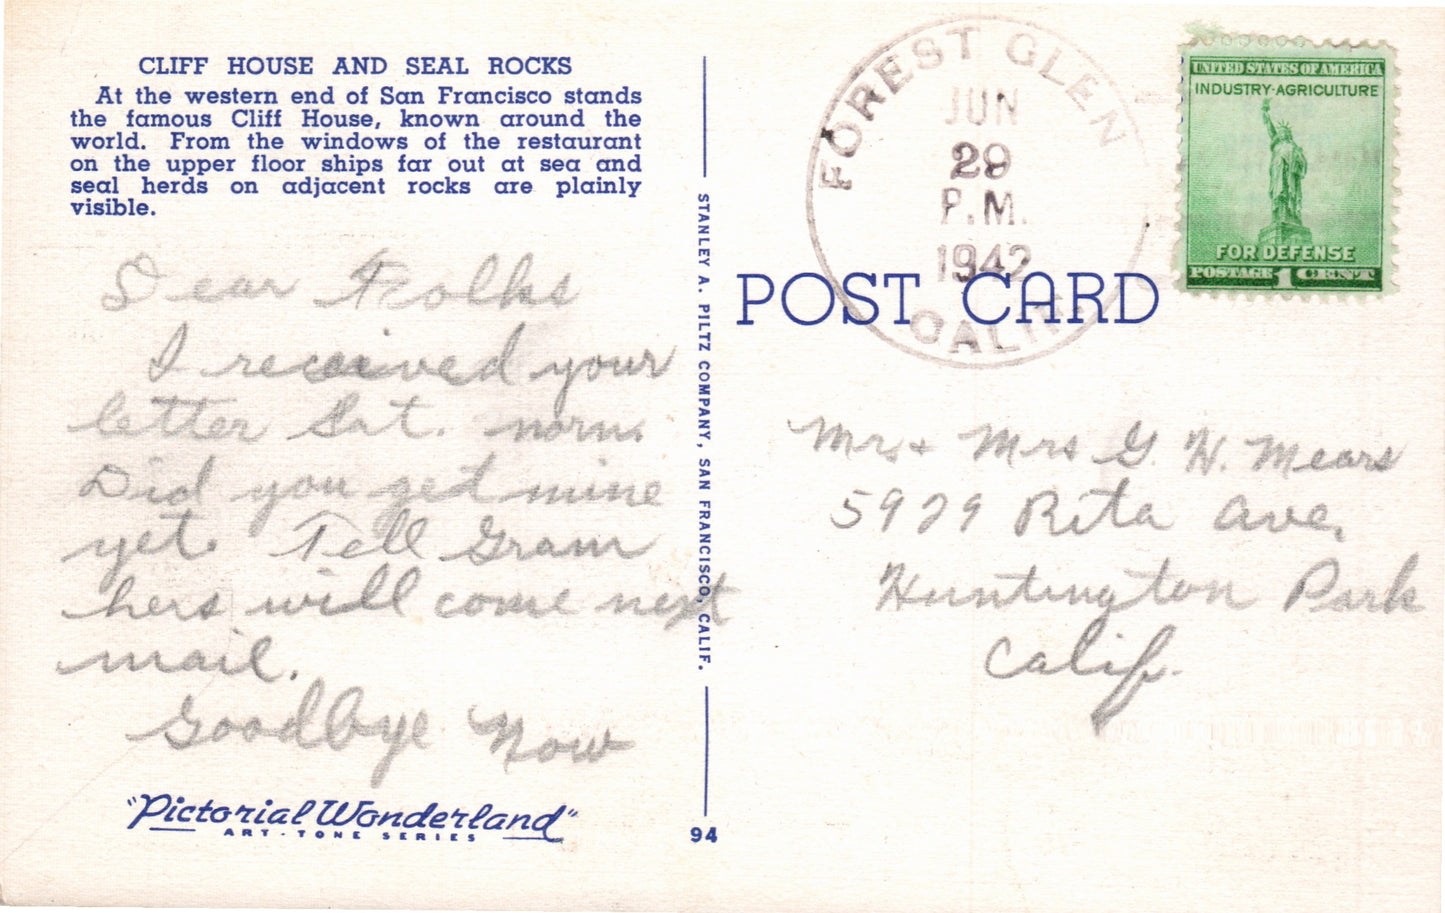 CLIFF HOUSE AND SEAL ROCKS
At the western end of San Francisco stands
the famous Cliff House, known around the
world. From the windows of the restaurant
on the upper floor ships far out at sea and
seal herds on adjacent rocks are plainly
visible.
Dear Folks
I received your
letter Sat. morn.
Did you get mine
yet. Tell Gram
hers will come next
mail.
Goodbye Now
"Pictorial Wonderland"
ART-TONE SERIES
STANLEY A. PILTZ COMPANY, SAN FRANCISCO, CALIF.
94
POST CARD
FOREST GLEN
JUN
29
P.M.
1942
CALIF.
UNITED STATES OF AMERICA
INDUSTRY·AGRICULTURE
FOR DEFENSE
POSTAGE 1 CENT
Mr & Mrs G. H. Mears
5929 Rita Ave,
Huntington Park
Calif.